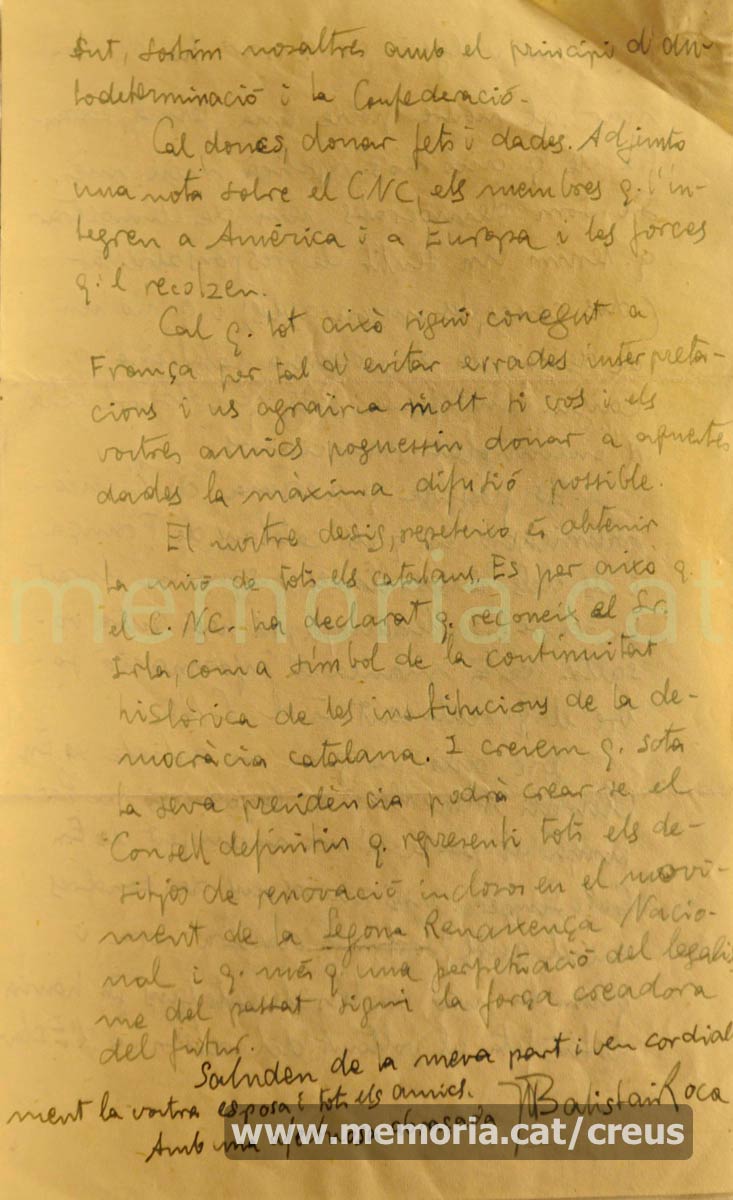 sortim nosaltres amb el principi d'au-
todeterminació i la Confederació.
Cal, doncs, donar fets i dades. Adjunto
una nota sobre el CNC, els membres q. l'in-
tegren a Amèrica i a Europa i les forces
q. l recolzen.
Cal q. tot això sigui conegut a
França per tal d'evitar errades interpreta-
cions i us agrairia molt si vos i els
vostres amics poguessin donar a aquestes
dades la màxima difusió possible.
El nostre desig, repeteixo, és obtenir
la unió de tots els catalans. Es per això q.
el C.N.C. ha declarat q. reconeix al Sr.
Irla, com a símbol de la continuitat
històrica de les institucions de la de-
mocràcia catalana. I creiem q. sota
la seva presidència podrà crear-se el
Consell definitiu q. representi tots els de-
sitjos de renovació inclosos en el movi-
ment de la Segona Renaixença Nacio-
nal i q. més q. una perpetuació del legalis
me del passat sigui la força creadora
del futur.
Saluden de la meva part i ben cordial
ment la vostra esposa i tots els amics.
JM Batista i Roca
Amb una
memoria.cat
www.memoria.cat/creus